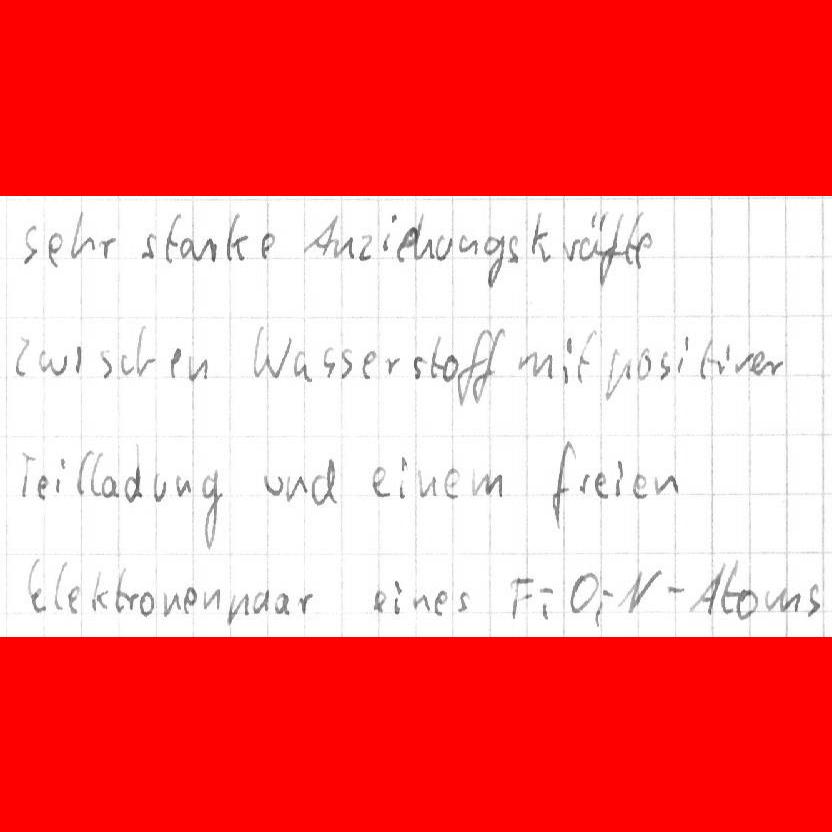 sehr starke Anziehungskräfte
zwischen Wasserstoff mit positiver
Teilladung und einem freien
Elektronenpaar eines F-, O-, N-Atoms